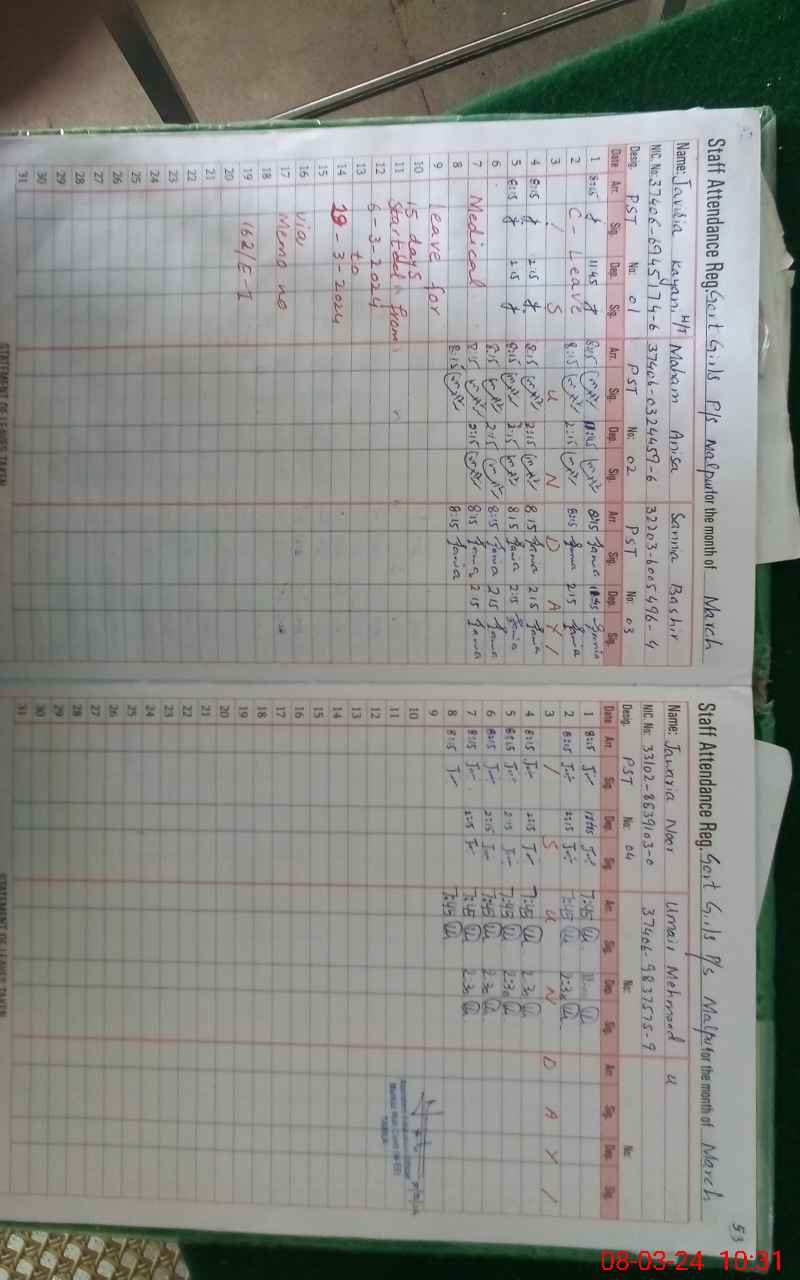 Staff Attendance Reg. Govt Girls P/S Malpur for the month of March
Name: Javidia Kayani H/T Maham Anisa Samna Bashir
NIC. No: 37406-6945174-6 37406-0324459-6 32203-6005496-4
Desig. PST No: 01 PST No: 02 PST No: 03
Date Arr. Sig. Dep. Sig. Arr. Sig. Dep. Sig. Arr. Sig. Dep. Sig.
1 8:15 11:45 8:15 11:45 8:15 11:45
2 C-Leave 8:15 2:15 8:15 2:15
3 / S U N D A Y /
4 8:15 2:15 8:15 2:15 8:15 2:15
5 8:15 2:15 8:15 2:15 8:15 2:15
6 8:15 2:15 8:15 2:15
7 Medical 8:15 2:15 8:15 2:15
8 8:15 8:15
9 Leave for
10 15 days
11 Started from
12 6-3-2024
13 to
14 -3-2024
15
16 via
17 Memo no
18
19 162/E-I
20
21
22
23
24
25
26
27
28
29
30
31
STATEMENT OF LEAVES TAKEN
53
Staff Attendance Reg. Govt Girls P/S Malpur for the month of March
Name: Jawaria Noor Umair Mehmood
NIC. No: 33102-8639103-0 37406-9837575-9
Desig. PST No: 04 No: No:
Date Arr. Sig. Dep. Sig. Arr. Sig. Dep. Sig. Arr. Sig. Dep. Sig.
1 8:15 7:45
2 8:15 2:15 7:45 2:30
3 / S U N D A Y /
4 8:15 2:15 7:45 2:30
5 8:15 2:15 7:45 2:30
6 8:15 2:15 7:45 2:30
7 8:15 2:15 7:45 2:30
8 8:15 7:45
9
10
11
12
13
14
15
16
17
18
19
20
21
22
23
24
25
26
27
28
29
30
31
STATEMENT OF LEAVES TAKEN
08-03-24 10:31